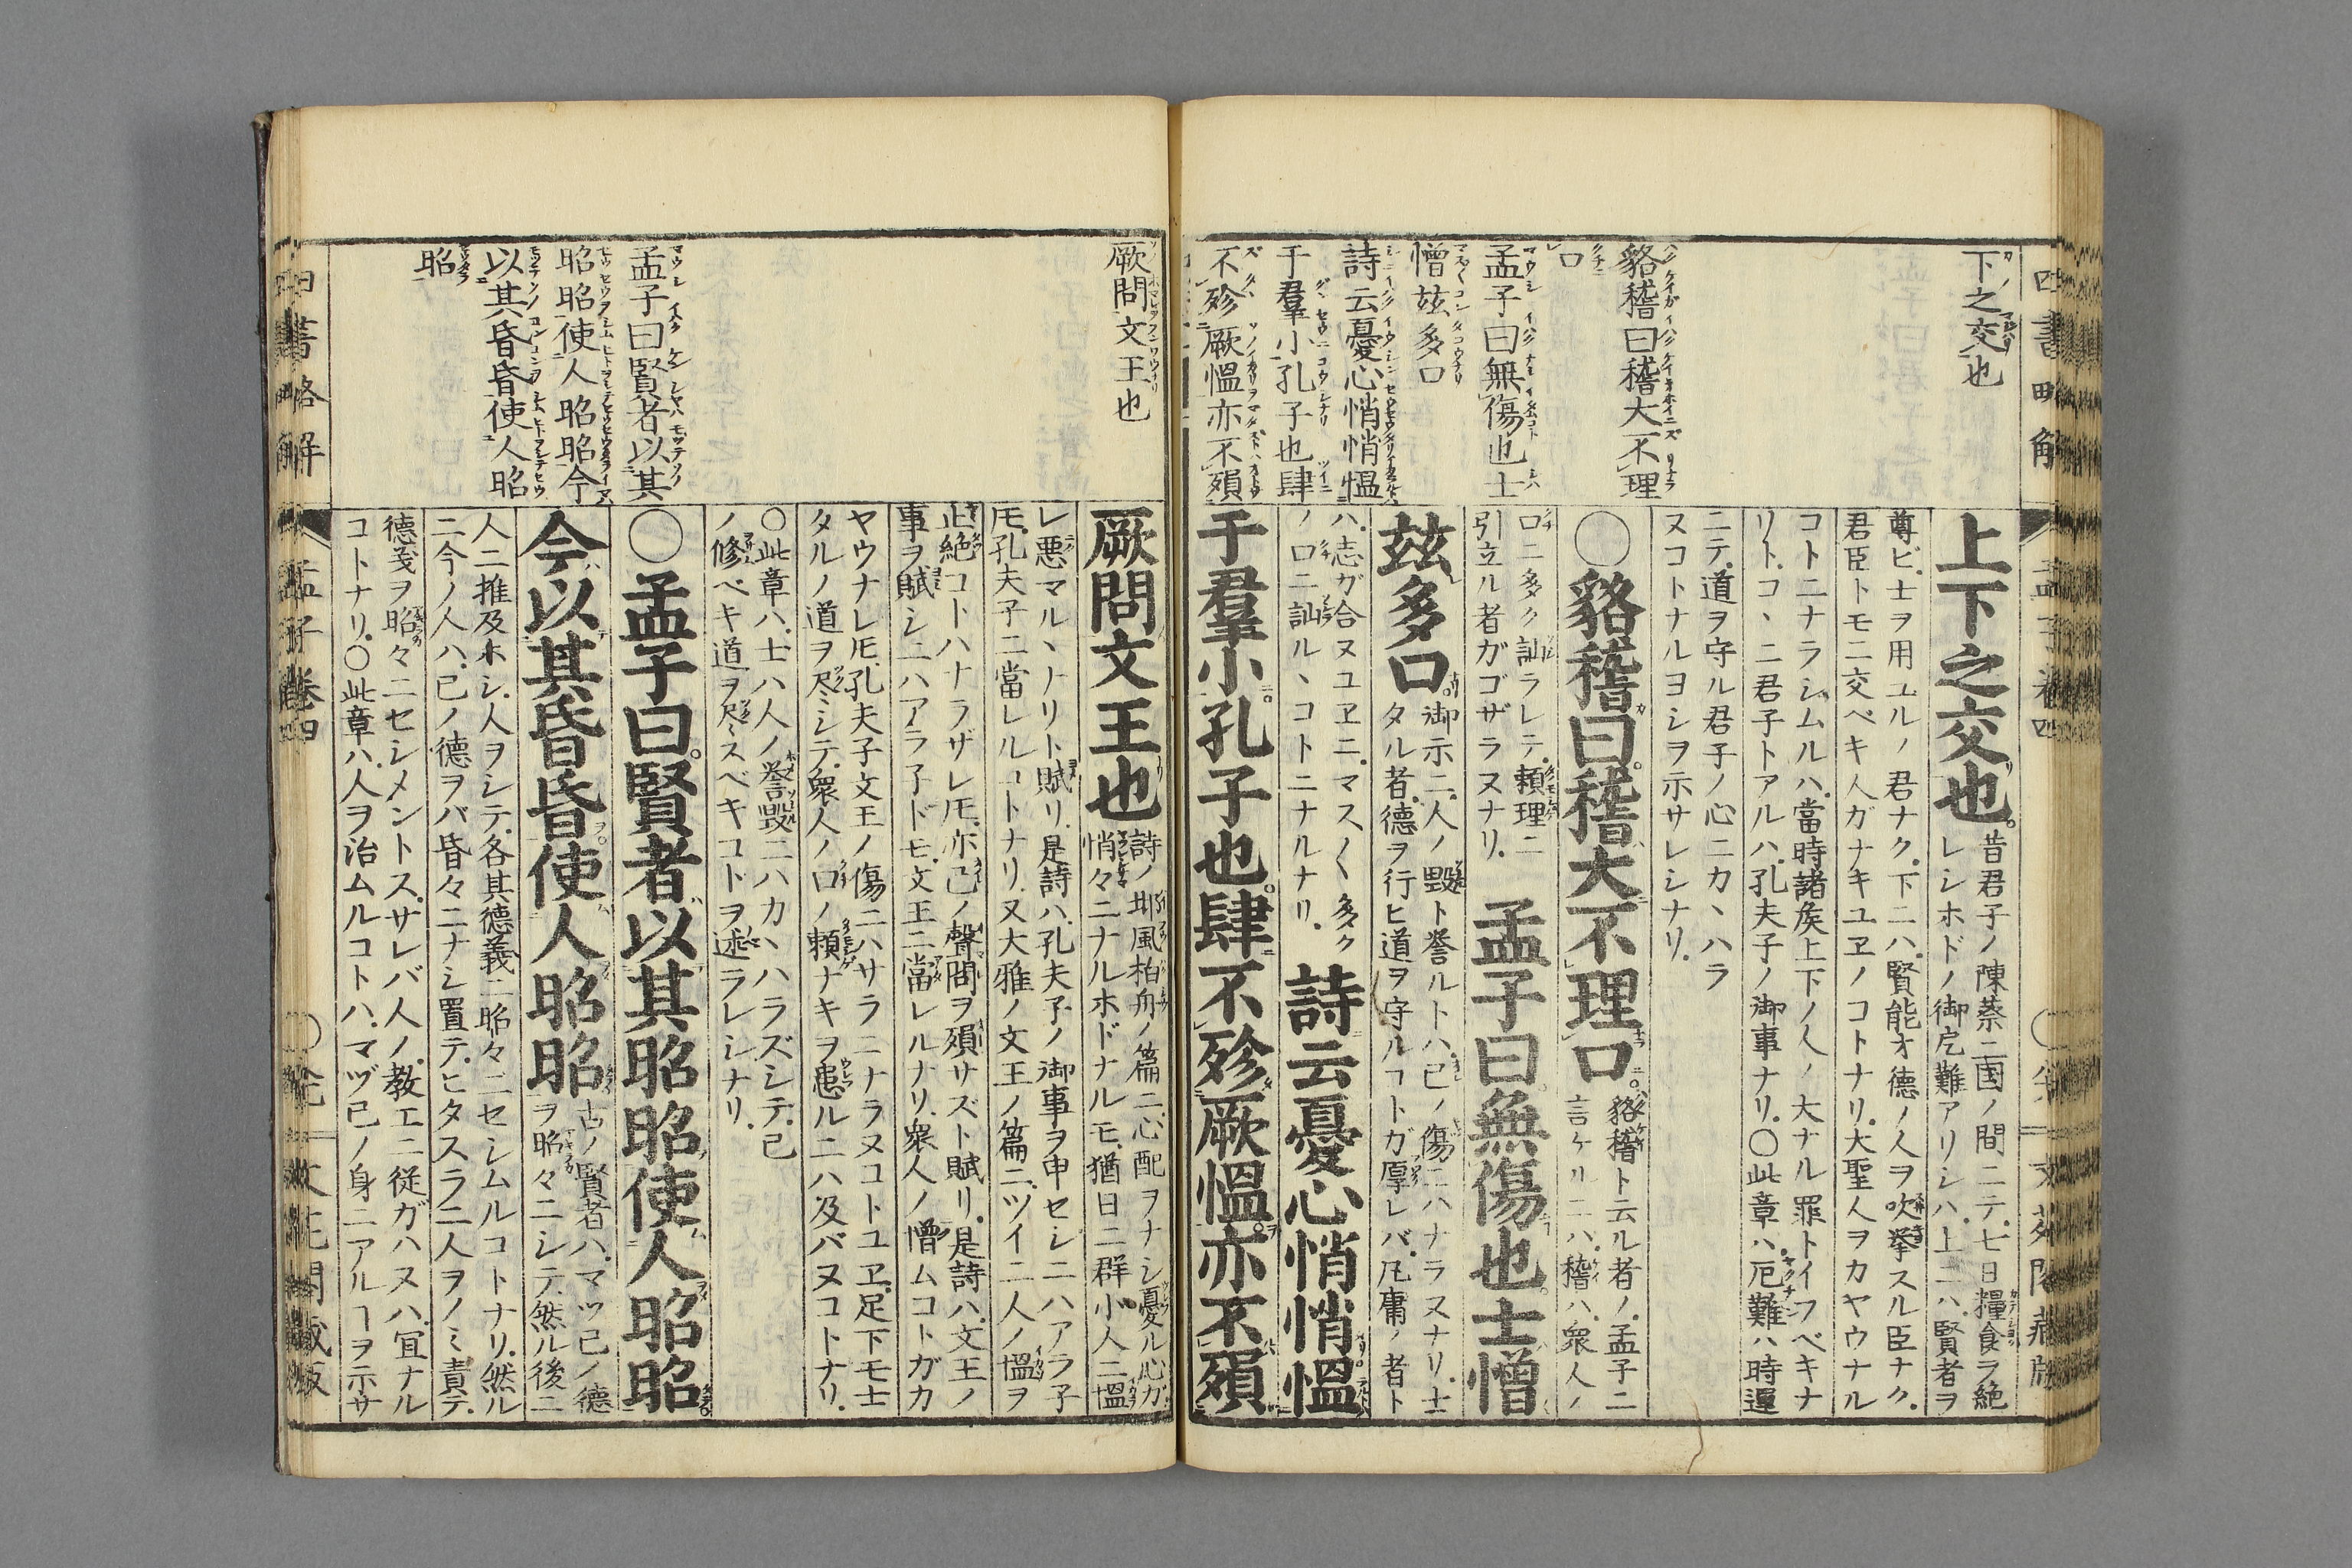 四書略解
孟子卷四
下之交也
貉稽曰稽大不理
口
孟子曰無傷也士
憎玆多口
詩云憂心悄悄慍
于羣小孔子也肆
不殄厥慍亦不殞
上下之交也。
昔君子ノ陳蔡二国ノ間ニテ、七日糧食ヲ絶
レシホドノ御戹難アリシハ、上ニハ、賢者ヲ
尊ビ、士ヲ用ユルノ君ナク、下ニハ、賢能才德ノ人ヲ吹挙スル臣ナク、
君臣トモニ交ベキ人ガナキユヱノコトナリ、大聖人ヲカヤウナル
コトニナラシムルハ、當時諸矦上下ノ人ノ大ナル罪トイフベキナ
リト、コヽニ君子トアルハ、孔夫子ノ御事ナリ、○此章ハ、厄難ハ時運
ニテ、道ヲ守ル君子ノ心ニカヽハラ
ヌコトナルヨシヲ示サレシナリ、
○貉稽曰。稽大不理口。
貉稽ト云ル者ノ、孟子ニ
言ケルニハ、稽ハ、衆人ノ
口ニ多ク訕ラレテ、頼理ニ
引立ル者ガゴザラヌナリ、
孟子曰。無傷也。士憎
玆多口。
御示ニ、人ノ毀ト誉ルトハ、己ノ傷ニハナラヌナリ、士
タル者、德ヲ行ヒ道ヲ守ルコトガ厚レバ、凡庸ノ者ト
ハ、志ガ合ヌユヱニ、マス〱多ク
ノ口ニ訕ルヽコトニナルナリ、
詩云。憂心悄悄。慍
于羣小。孔子也。肆不殄厥慍。亦不殞
厥問文王也
孟子曰賢者以其
昭昭使人昭昭今
以其昏昏使人昭
昭
厥問。文王也
詩ノ邶風柏舟ノ篇ニ、心配ヲナシ憂ル心ガ
悄々ニナルホドナルモ、猶日ニ群小人ニ慍
レ悪マルヽナリト賦リ、是詩ハ、孔夫子ノ御事ヲ申セシニハアラ子
𪜈、孔夫子ニ當レルコトナリ、又大雅ノ文王ノ篇ニ、ツイニ人ノ慍ヲ
止絶コトハナラザレ𪜈、亦己ノ聲問ヲ殞サズト賦リ、是詩ハ、文王ノ
事ヲ賦シニハアラ子ドモ、文王ニ當レルナリ、衆人ノ憎ムコトガカ
ヤウナレ𪜈、孔夫子文王ノ傷ニハサラニナラヌコトユヱ、足下モ士
タルノ道ヲ尽シテ、衆人ノ口ノ頼ナキヲ患ルニハ及バヌコトナリ、
○此章ハ、士ハ人ノ誉毀ニハカヽハラズシテ、己
ノ修ベキ道ヲ尽スベキコトヲ述ラレシナリ、
○孟子曰。賢者以其昭昭使人昭昭。
今以其昏昏。使人昭昭
古ノ賢者ハ、マヅ己ノ德
ヲ昭々ニシテ、然ル後ニ
人ニ推及ホシ、人ヲシテ、各其德義ニ昭々ニセシムルコトナリ、然ル
ニ今ノ人ハ、己ノ德ヲバ昏々ニナシ置テ、ヒタスラ二人ヲノミ責テ、
德義ヲ昭々ニセシメントス、サレバ人ノ、教エニ従ガハヌハ、宜ナル
コトナリ、○此章ハ、人ヲ治ムルコトハ、マヅ己ノ身ニアルヿヲ示サ
四書略解
孟子卷四